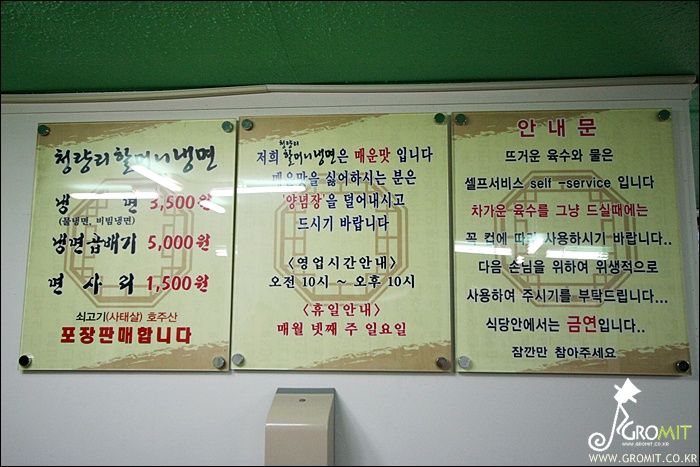 청량리 할머니 냉면
냉 면 3,500원
(물냉면, 비빔냉면)
냉면곱배기 5,000원
면 사 리 1,500원
쇠고기(사태살) 호주산
포장판매합니다
저희 청량리 할머니냉면은 매운맛 입니다
매운맛을 싫어하시는 분은
'양념장'을 덜어내시고
드시기 바랍니다
<영업시간안내>
오전 10시 ~ 오후 10시
<휴일안내>
매월 넷째 주 일요일
안 내 문
뜨거운 육수와 물은
셀프서비스 self -service 입니다
차가운 육수를 그냥 드실때에는
꼭 컵에 따라 사용하시기 바랍니다..
다음 손님을 위하여 위생적으로
사용하여 주시기를 부탁드립니다...
식당안에서는 금연입니다..
잠깐만 참아주세요
GROMIT
WWW.GROMIT.CO.KR